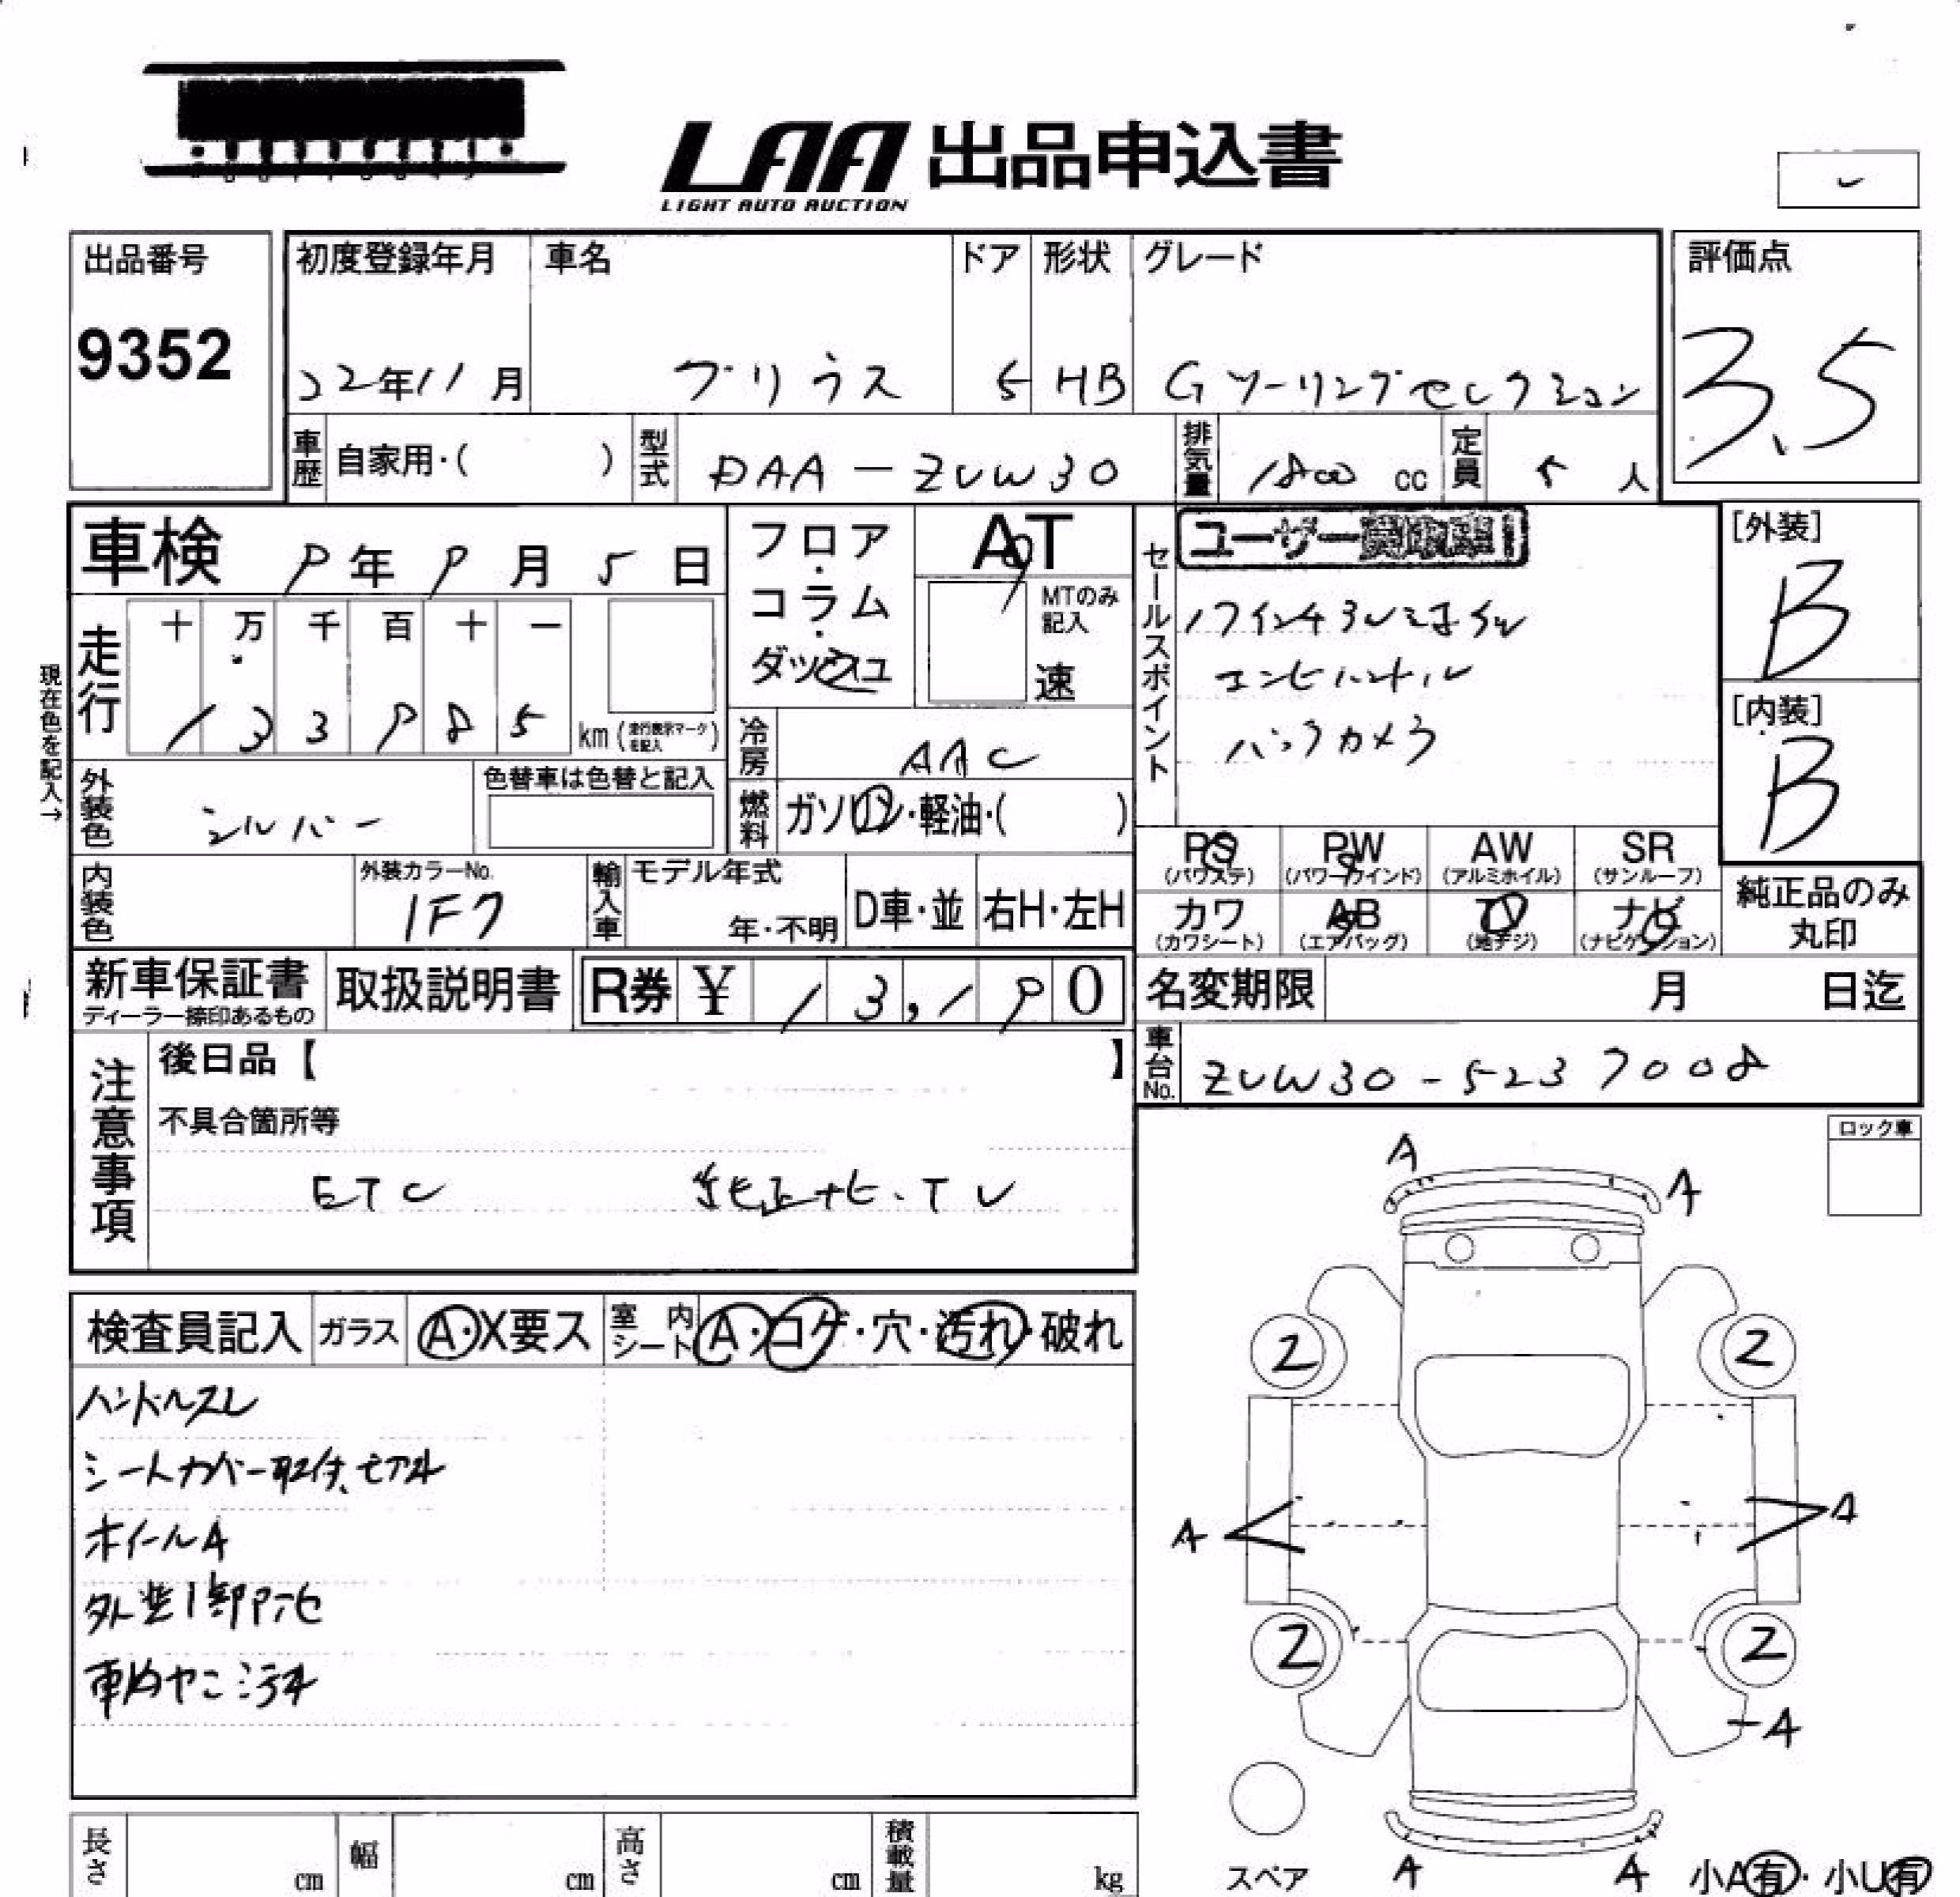 LAA 出品申込書
LIGHT AUTO AUCTION
出品番号
9352
初度登録年月
22年11月
車名
プリウス
ドア
5
形状
HB
グレード
Gツーリングセレクション
評価点
3.5
車歴
自家用・( )
型式
DAA-ZVW30
排気量
1800 cc
定員
5 人
車検
9年9月5日
走行
十 万 千 百 十 一
1 3 3 9 8 5 km
現在色を記入→
フロア・コラム・ダッシュ
AT
MTのみ記入
速
冷房
AAC
燃料
ガソリン・軽油・( )
外装色
シルバー
色替車は色替と記入
内装色
外装カラーNo.
1F7
輸入車
モデル年式
年・不明
D車・並
右H・左H
セールスポイント
ユーザー
エンヒハンドル
バックカメラ
[外装]
B
[内装]
B
PS (パワステ)
PW (パワーウインド)
AW (アルミホイル)
SR (サンルーフ)
カワ (カワシート)
AB (エアバッグ)
TV (地デジ)
ナビ (ナビゲーション)
純正品のみ丸印
新車保証書
ディーラー捺印あるもの
取扱説明書
R券 ¥ 13,190
名変期限
月 日迄
車台No.
ZVW30-5237008
注意事項
後日品【 】
不具合箇所等
ETC 純正ナビ、TV
ロック車
検査員記入
ガラス
A・X要ス
室内シート
A・コゲ・穴・汚れ・破れ
ハンドルスレ
シートカバー取付、
ホイールA
外装1部
車内ヤニ汚れ
A
A
2
2
A
A
2
2
A
A
A
スペア
小A有・小U有
長さ
cm
幅
cm
高さ
cm
積載量
kg